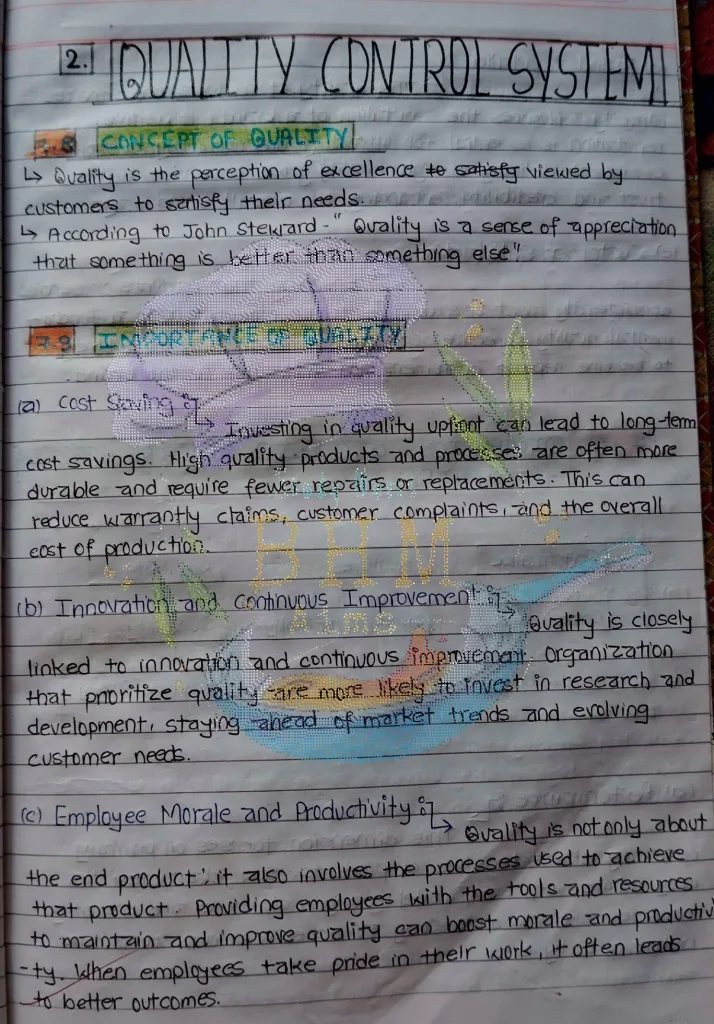 2. QUALITY CONTROL SYSTEM
7.8 CONCEPT OF QUALITY
↳ Quality is the perception of excellence to satisfy viewed by
customers to satisfy their needs.
↳ According to John Steward - " Quality is a sense of appreciation
that something is better than something else"
7.9 IMPORTANCE OF QUALITY
(a) Cost Saving :-
↳ Investing in quality upfront can lead to long-term
cost savings. High quality products and processes are often more
durable and require fewer repairs or replacements. This can
reduce warrantly claims, customer complaints, and the overall
cost of production.
BHM
(b) Innovation and Continuous Improvement :-
Aims
↳ Quality is closely
linked to innovation and continuous improvement. Organization
that prioritize quality are more likely to invest in research and
development, staying ahead of market trends and evolving
customer needs.
(c) Employee Morale and Productivity :-
↳ Quality is not only about
the end product ; it also involves the processes used to achieve
that product. Providing employees with the tools and resources
to maintain and improve quality can boost morale and productivi
-ty. When employees take pride in their work, it often leads
to better outcomes.